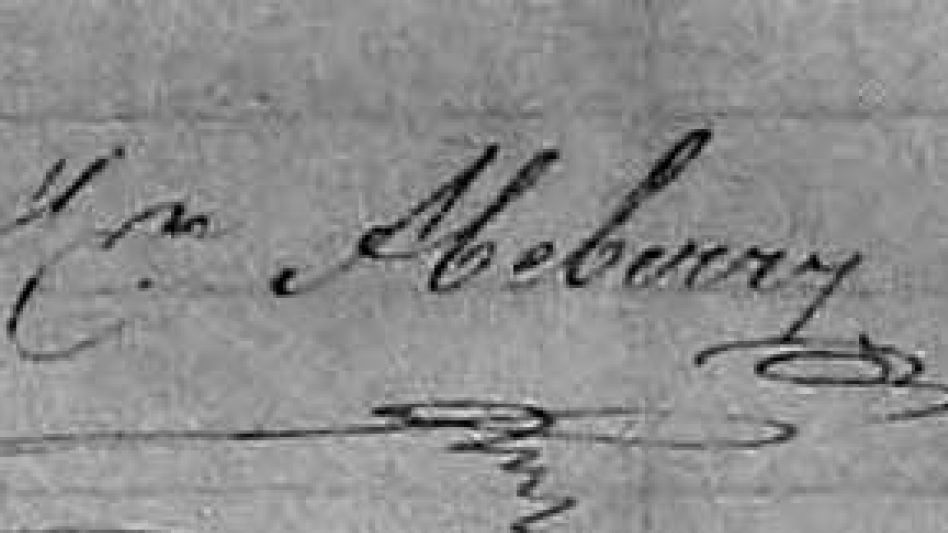 Wm Meberry